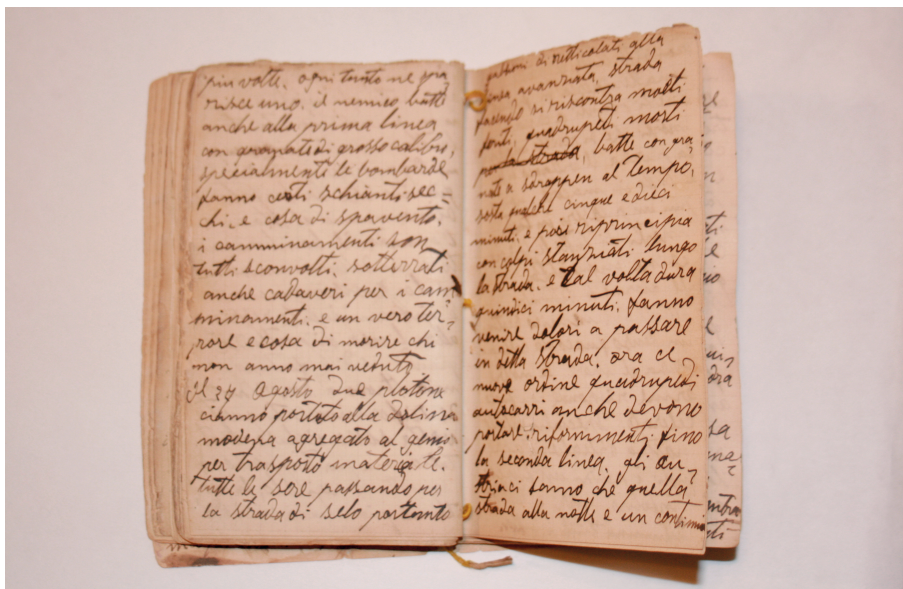 piu volte. ogni tanto ne
risce uno. il nemico batte
anche alla prima linea
con granate di grosso calibro,
specialmente le bombarde
fanno certi schianti sec=
chi. e cosa di spavento.
i camminamenti son
tutti sconvolti. sotterrati
anche cadaveri per i cam=
minamenti. e un vero ter=
rore e cosa di morire chi
non anno mai veduto
Il 24 agosto due plotone
cianno portato alla dolina
modena agregato al genio
per trasporto materiale.
tutte le sere passando per
la strada di selo portanto
di retticolati alla
linea avanziata, strada
facendo si riscontra molti
quadrupedi morti
strada, batte con gra=
nate a sdrappen al tempo,
sosta qualche cinque e dieci
minuti. e poi riprincipia
con colpi lungo
la strada. e tal volta dura
quindici minuti. fanno
venire dolori a passare
in detta strada. ora ce
nuove ordine quadrupedi
autocarri anche devono
portare. rifornimenti fino
la seconda linea. gli au=
striaci sanno che quella
strada alla notte e un continuo